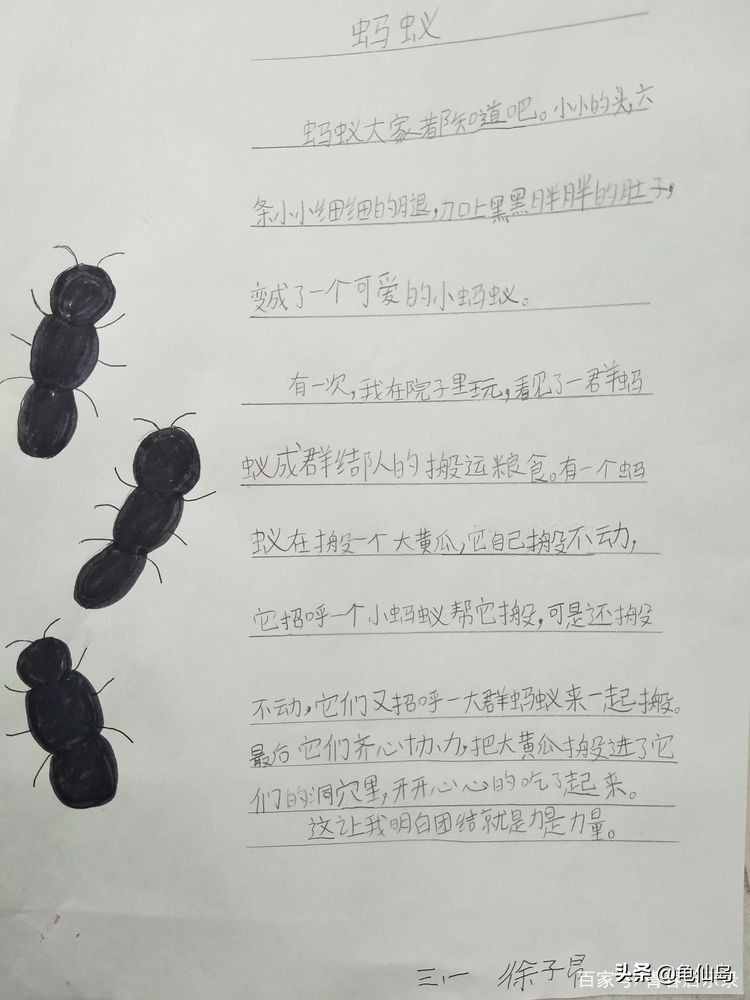 蚂蚁
蚂蚁大家都知道吧。小小的头,六
条小小细细的腿,加上黑黑胖胖的肚子,
变成了一个可爱的小蚂蚁。
有一次,我在院子里玩,看见了一群蚂
蚁成群结队的搬运粮食。有一个蚂
蚁在搬一个大黄瓜,它自己搬不动,
它招呼一个小蚂蚁帮它搬,可是还搬
不动,它们又招呼一大群蚂蚁来一起搬。
最后它们齐心协力,把大黄瓜搬进了它
们的洞穴里,开开心心的吃了起来。
这让我明白团结就是力是力量。
三、一 徐子昂
头条@龟仙岛
百家号